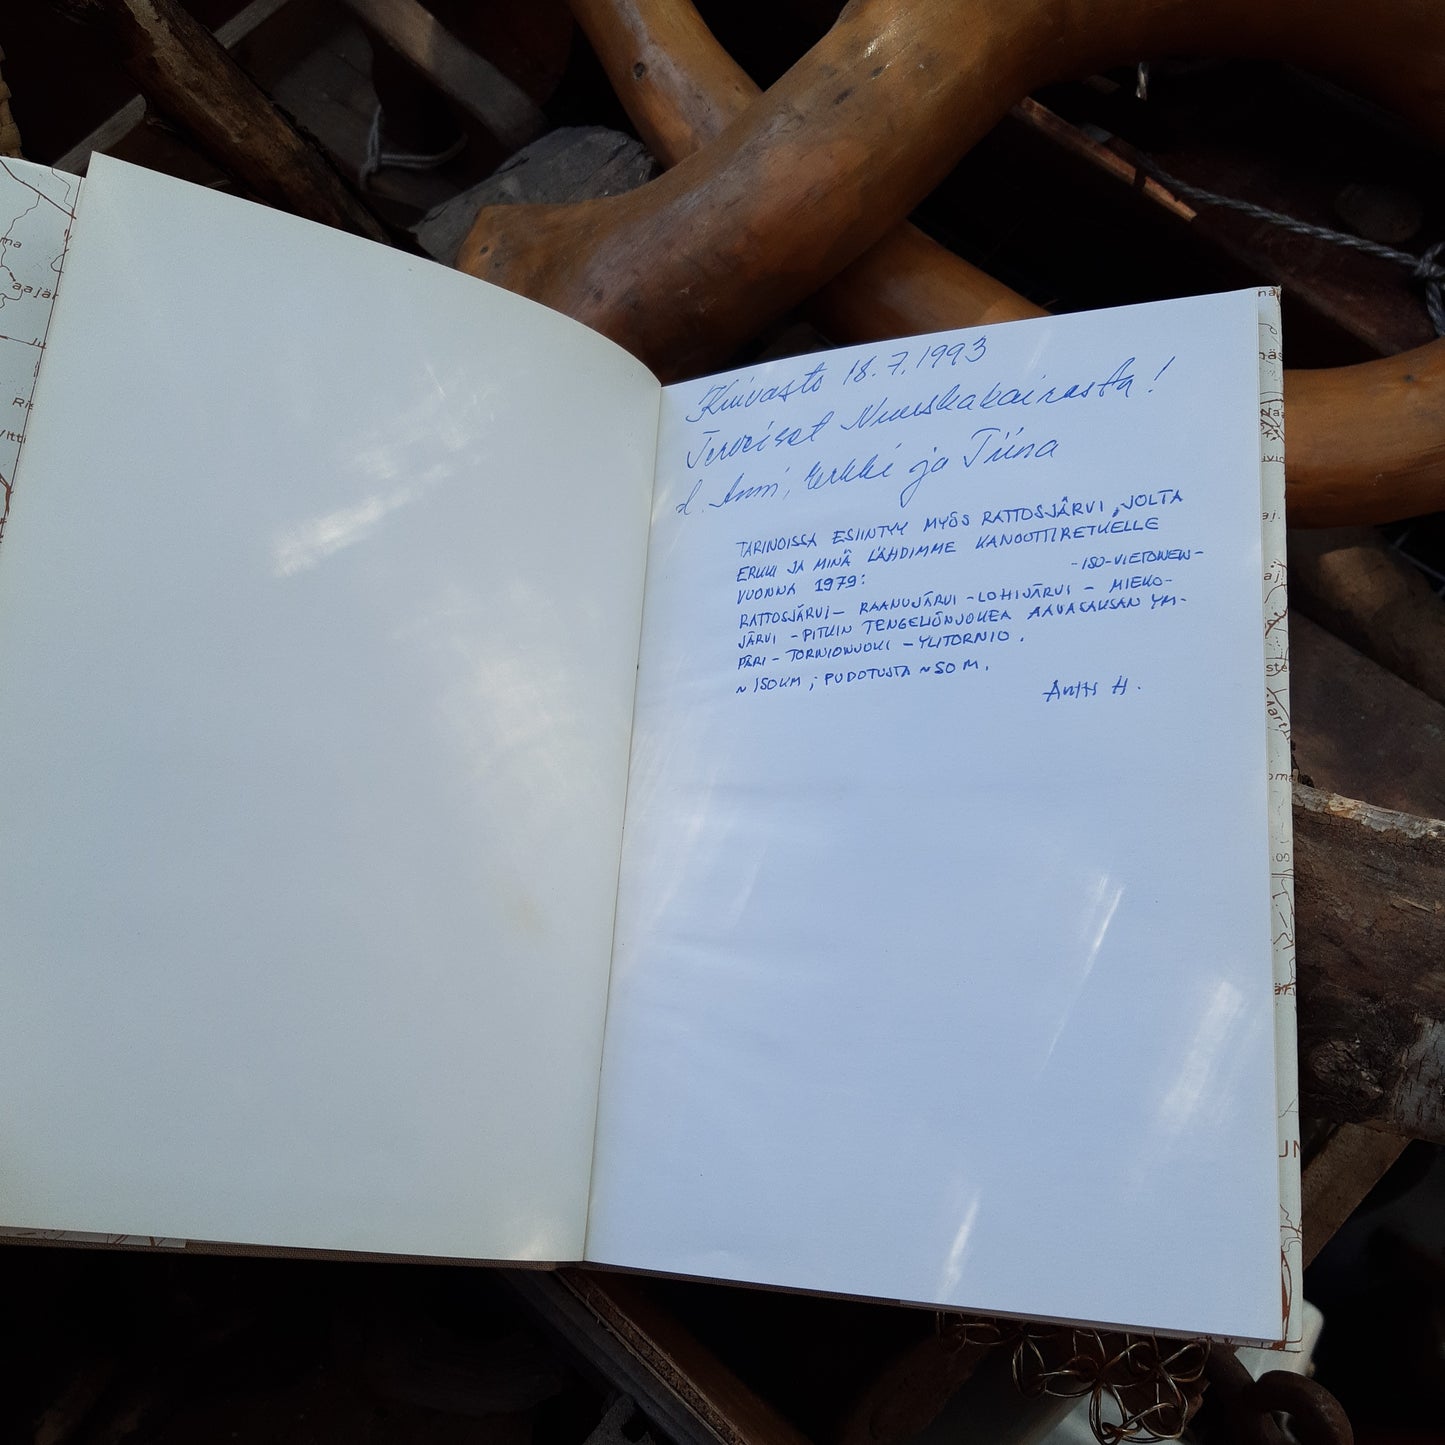 Kuivasto 18.7.1993
Terveiset Nuuskakairasta!
t. Anni, Erkki ja Tiina
TARINOISSA ESIINTYY MYÖS RATTOSJÄRVI, JOLTA
ERKKI JA MINÄ LÄHDIMME KANOOTTIRETKELLE
VUONNA 1979:
-ISO-VIETONEN-
RATTOSJÄRVI- RAANUJÄRVI -LOHIJÄRVI - MIEKO-
JÄRVI - PITKIN TENGELIÖNJOKEA AAVASAKSAN YM-
PÄRI - TORNIONJOKI - YLITORNIO.
~ 150KM ; PUDOTUSTA ~50 M.
Antti H.
ma
aajär
Ju
Ri
vitti
ste
ome
os
ärv
UN